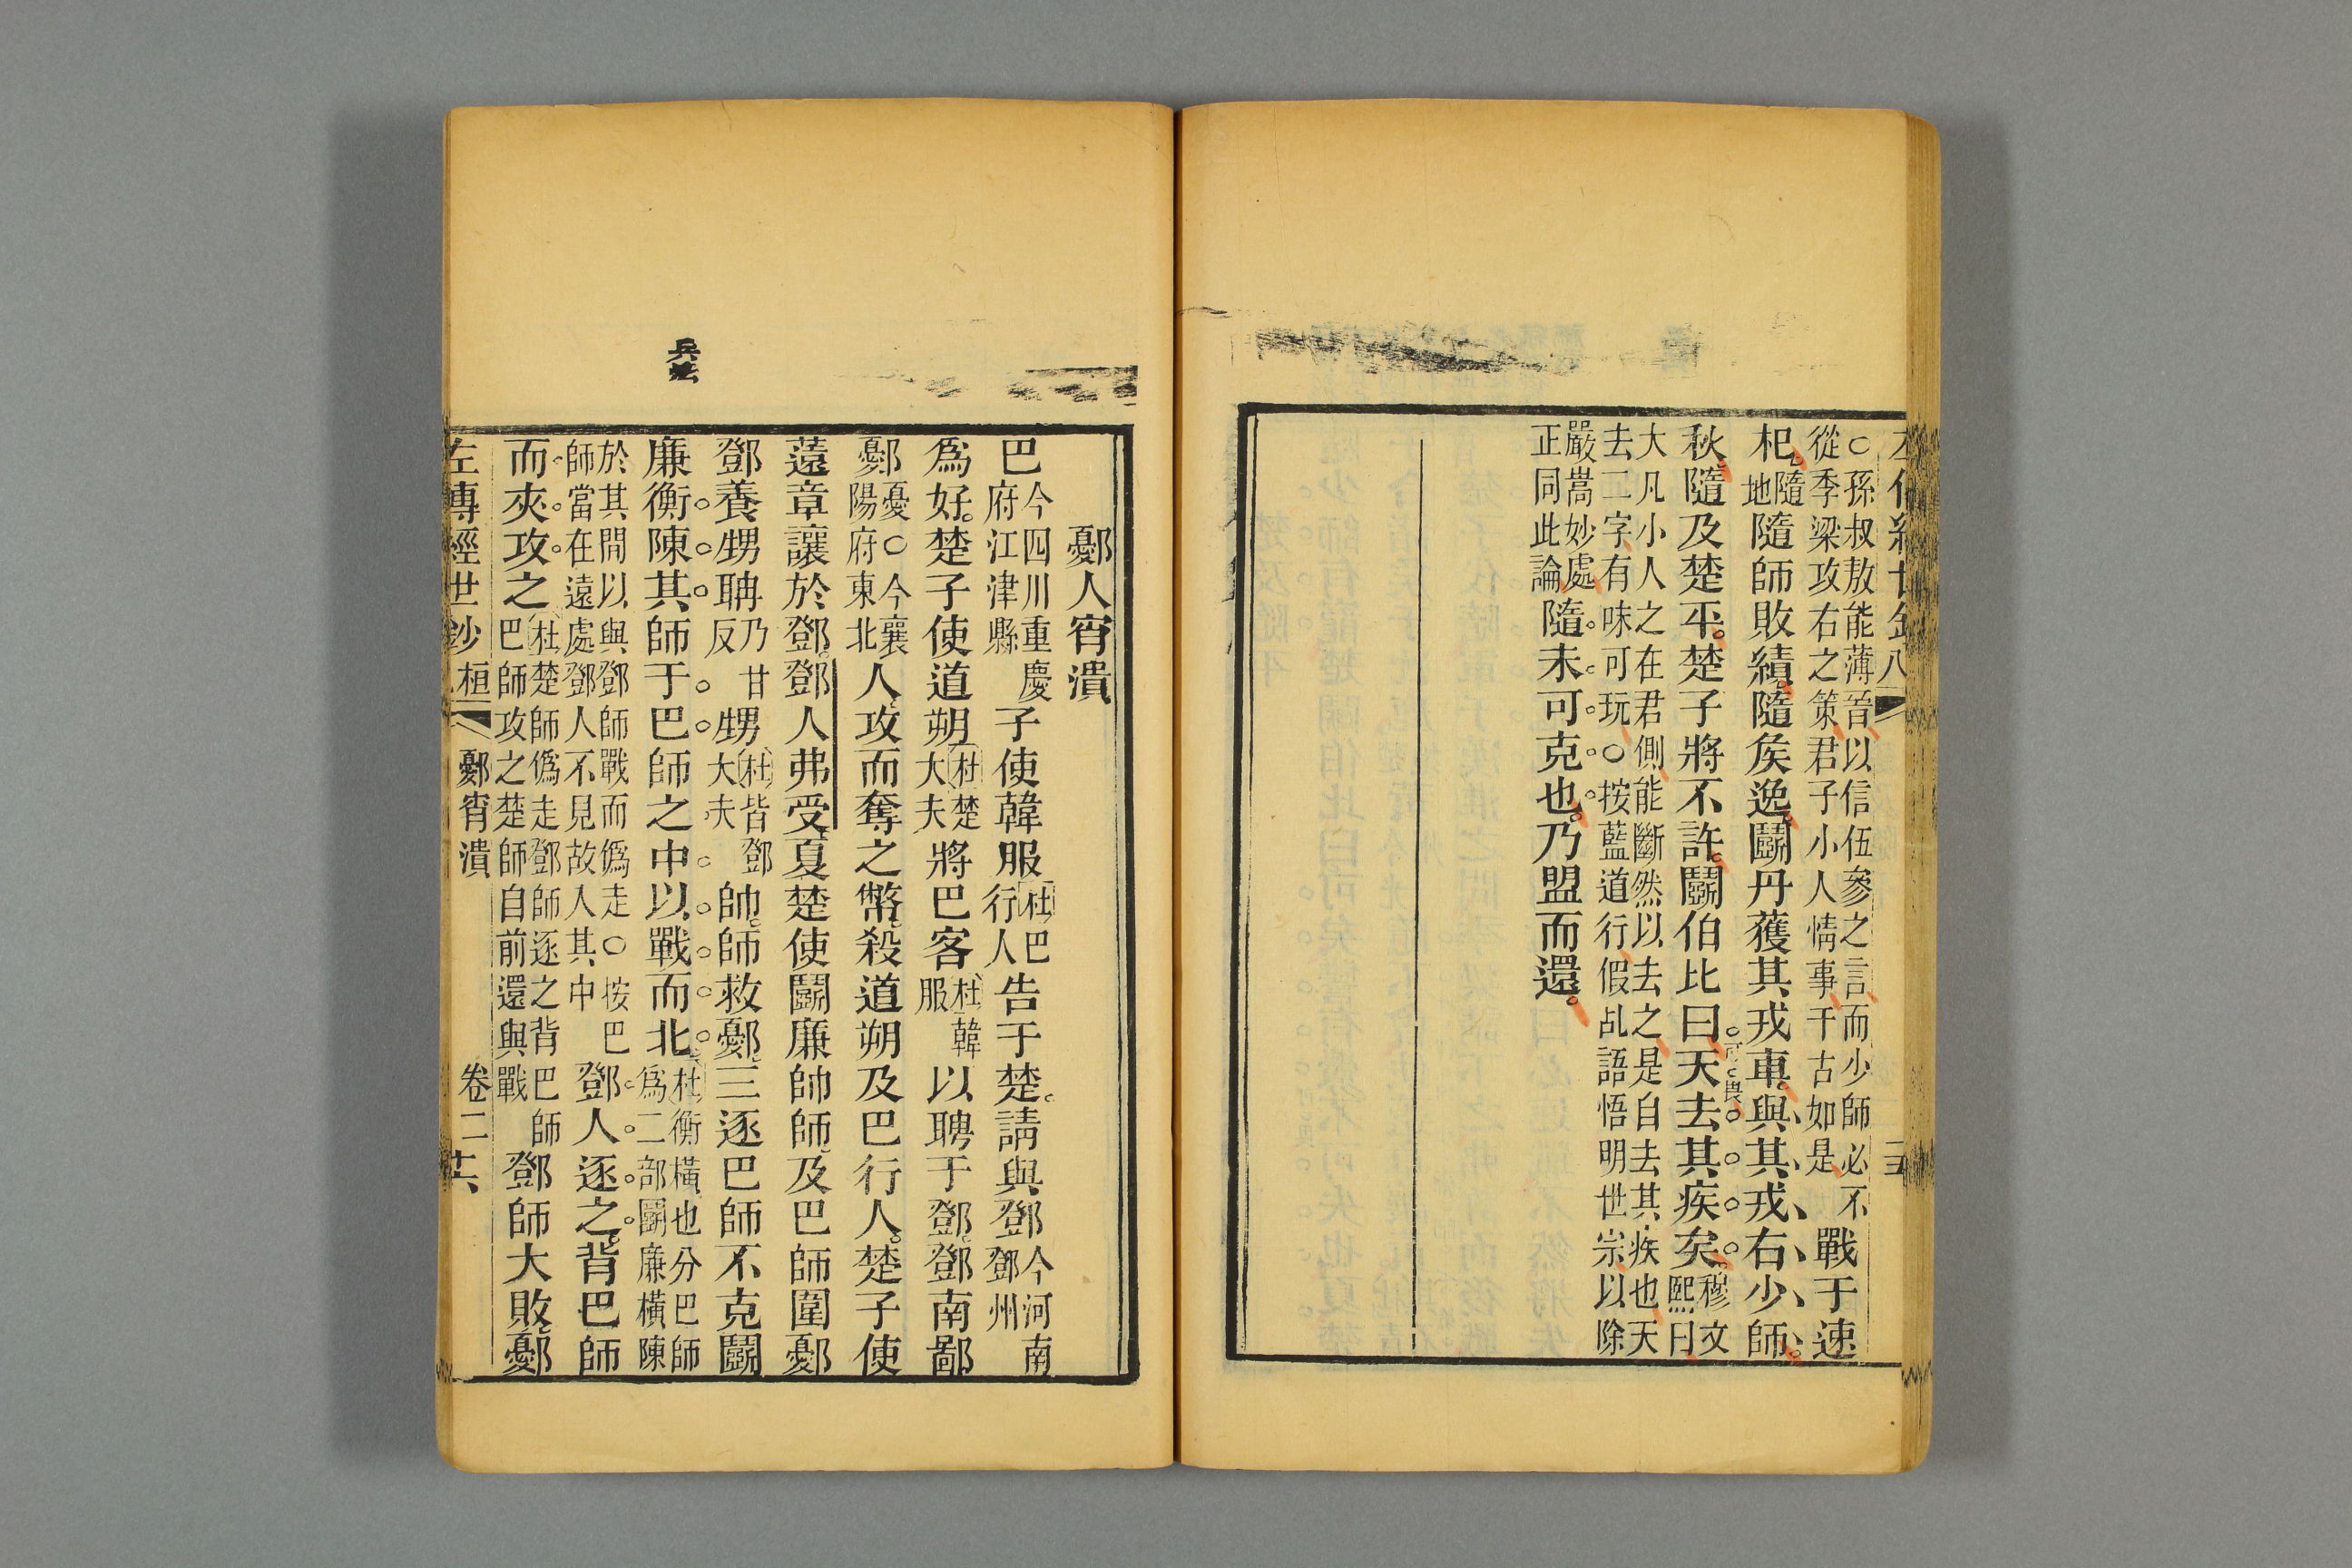 ○孫叔敖能薄晉以信伍參之言而少師必不
從季梁攻右之策君子小人情事千古如是
戰于速
杞
隨
地
隨師敗績隨矦逸鬬丹獲其戎車與其戎右少師
秋隨及楚平楚子將不許鬬伯比曰天去其疾矣
可畏
穆文
熙曰
大凡小人之在君側能斷然以去之是自去其疾也天
去二字有味可玩○按藍道行假乩語悟明世宗以除
嚴嵩妙處
正同此論
隨未可克也乃盟而還
兵法
鄾人宵潰
巴
今四川重慶
府江津縣
子使韓服
杜巴
行人
告于楚請與鄧
今河南
鄧州
爲好楚子使道朔
杜楚
大夫
將巴客
杜韓
服
以聘于鄧鄧南鄙
鄾
憂○今襄
陽府東北
人攻而奪之幣殺道朔及巴行人楚子使
薳章讓於鄧鄧人弗受夏楚使鬬廉帥師及巴師圍鄾
鄧養甥聃
乃甘
反
甥
杜皆鄧
大夫
帥師救鄾三逐巴師不克鬬
廉衡陳其師于巴師之中以戰而北
杜衡橫也分巴師
爲二部鬬廉橫陳
於其間以與鄧師戰而僞走○按巴
師當在遠處鄧人不見故人其中
鄧人逐之背巴師
而夾攻之
杜楚師僞走鄧師逐之背巴師
巴師攻之楚師自前還與戰
鄧師大敗鄾
左傳經世鈔 桓 鄾宵潰 卷二 十六